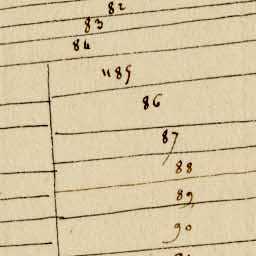 82
83
84
"85
86
87
88
89
90